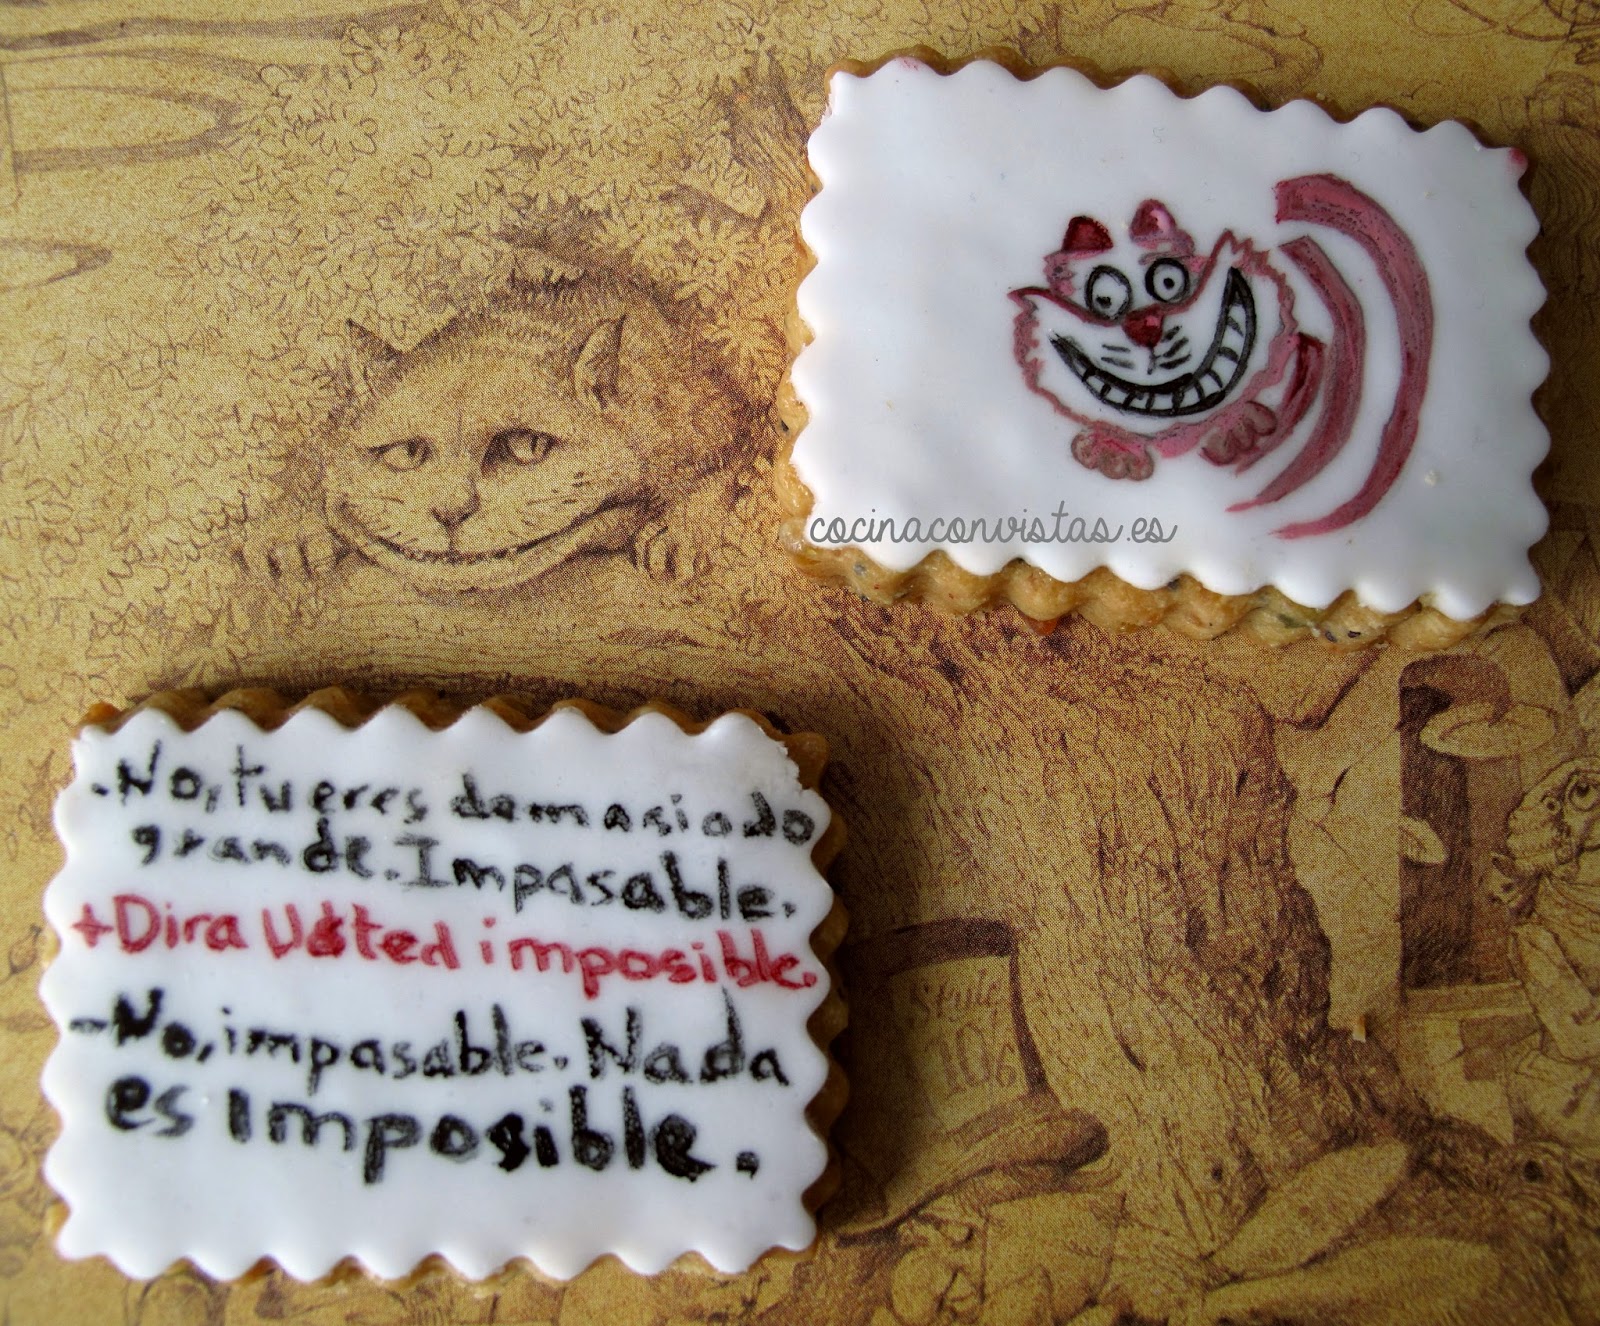 cocinaconvistas.es
-No, tu eres demasiado
grande. Impasable.
+Dira Usted imposible.
-No, impasable. Nada
es imposible.